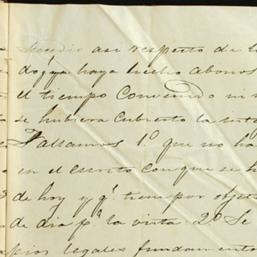 Sucedio asi respecto de l
do, ya haya hecho abonos
el tiempo convenido ni
se hubiera cubierto la
Pasamos 1º que no ha
en el escrito con que se h
de hoy y qe tiene por obje
de dia pa la vista 2º Se
pios legales fundament